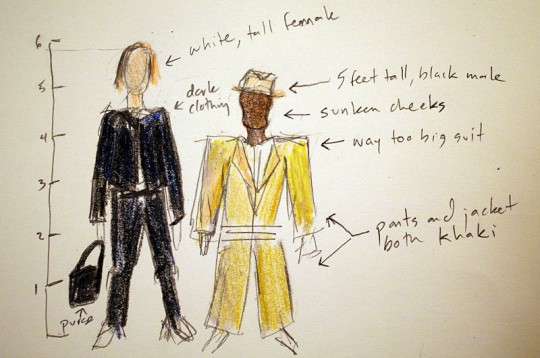 6
white, tall female
5
dark
clothing
5 feet tall, black male
sunken cheeks
4
way too big suit
3
pants and jacket
both khaki
2
1
purse